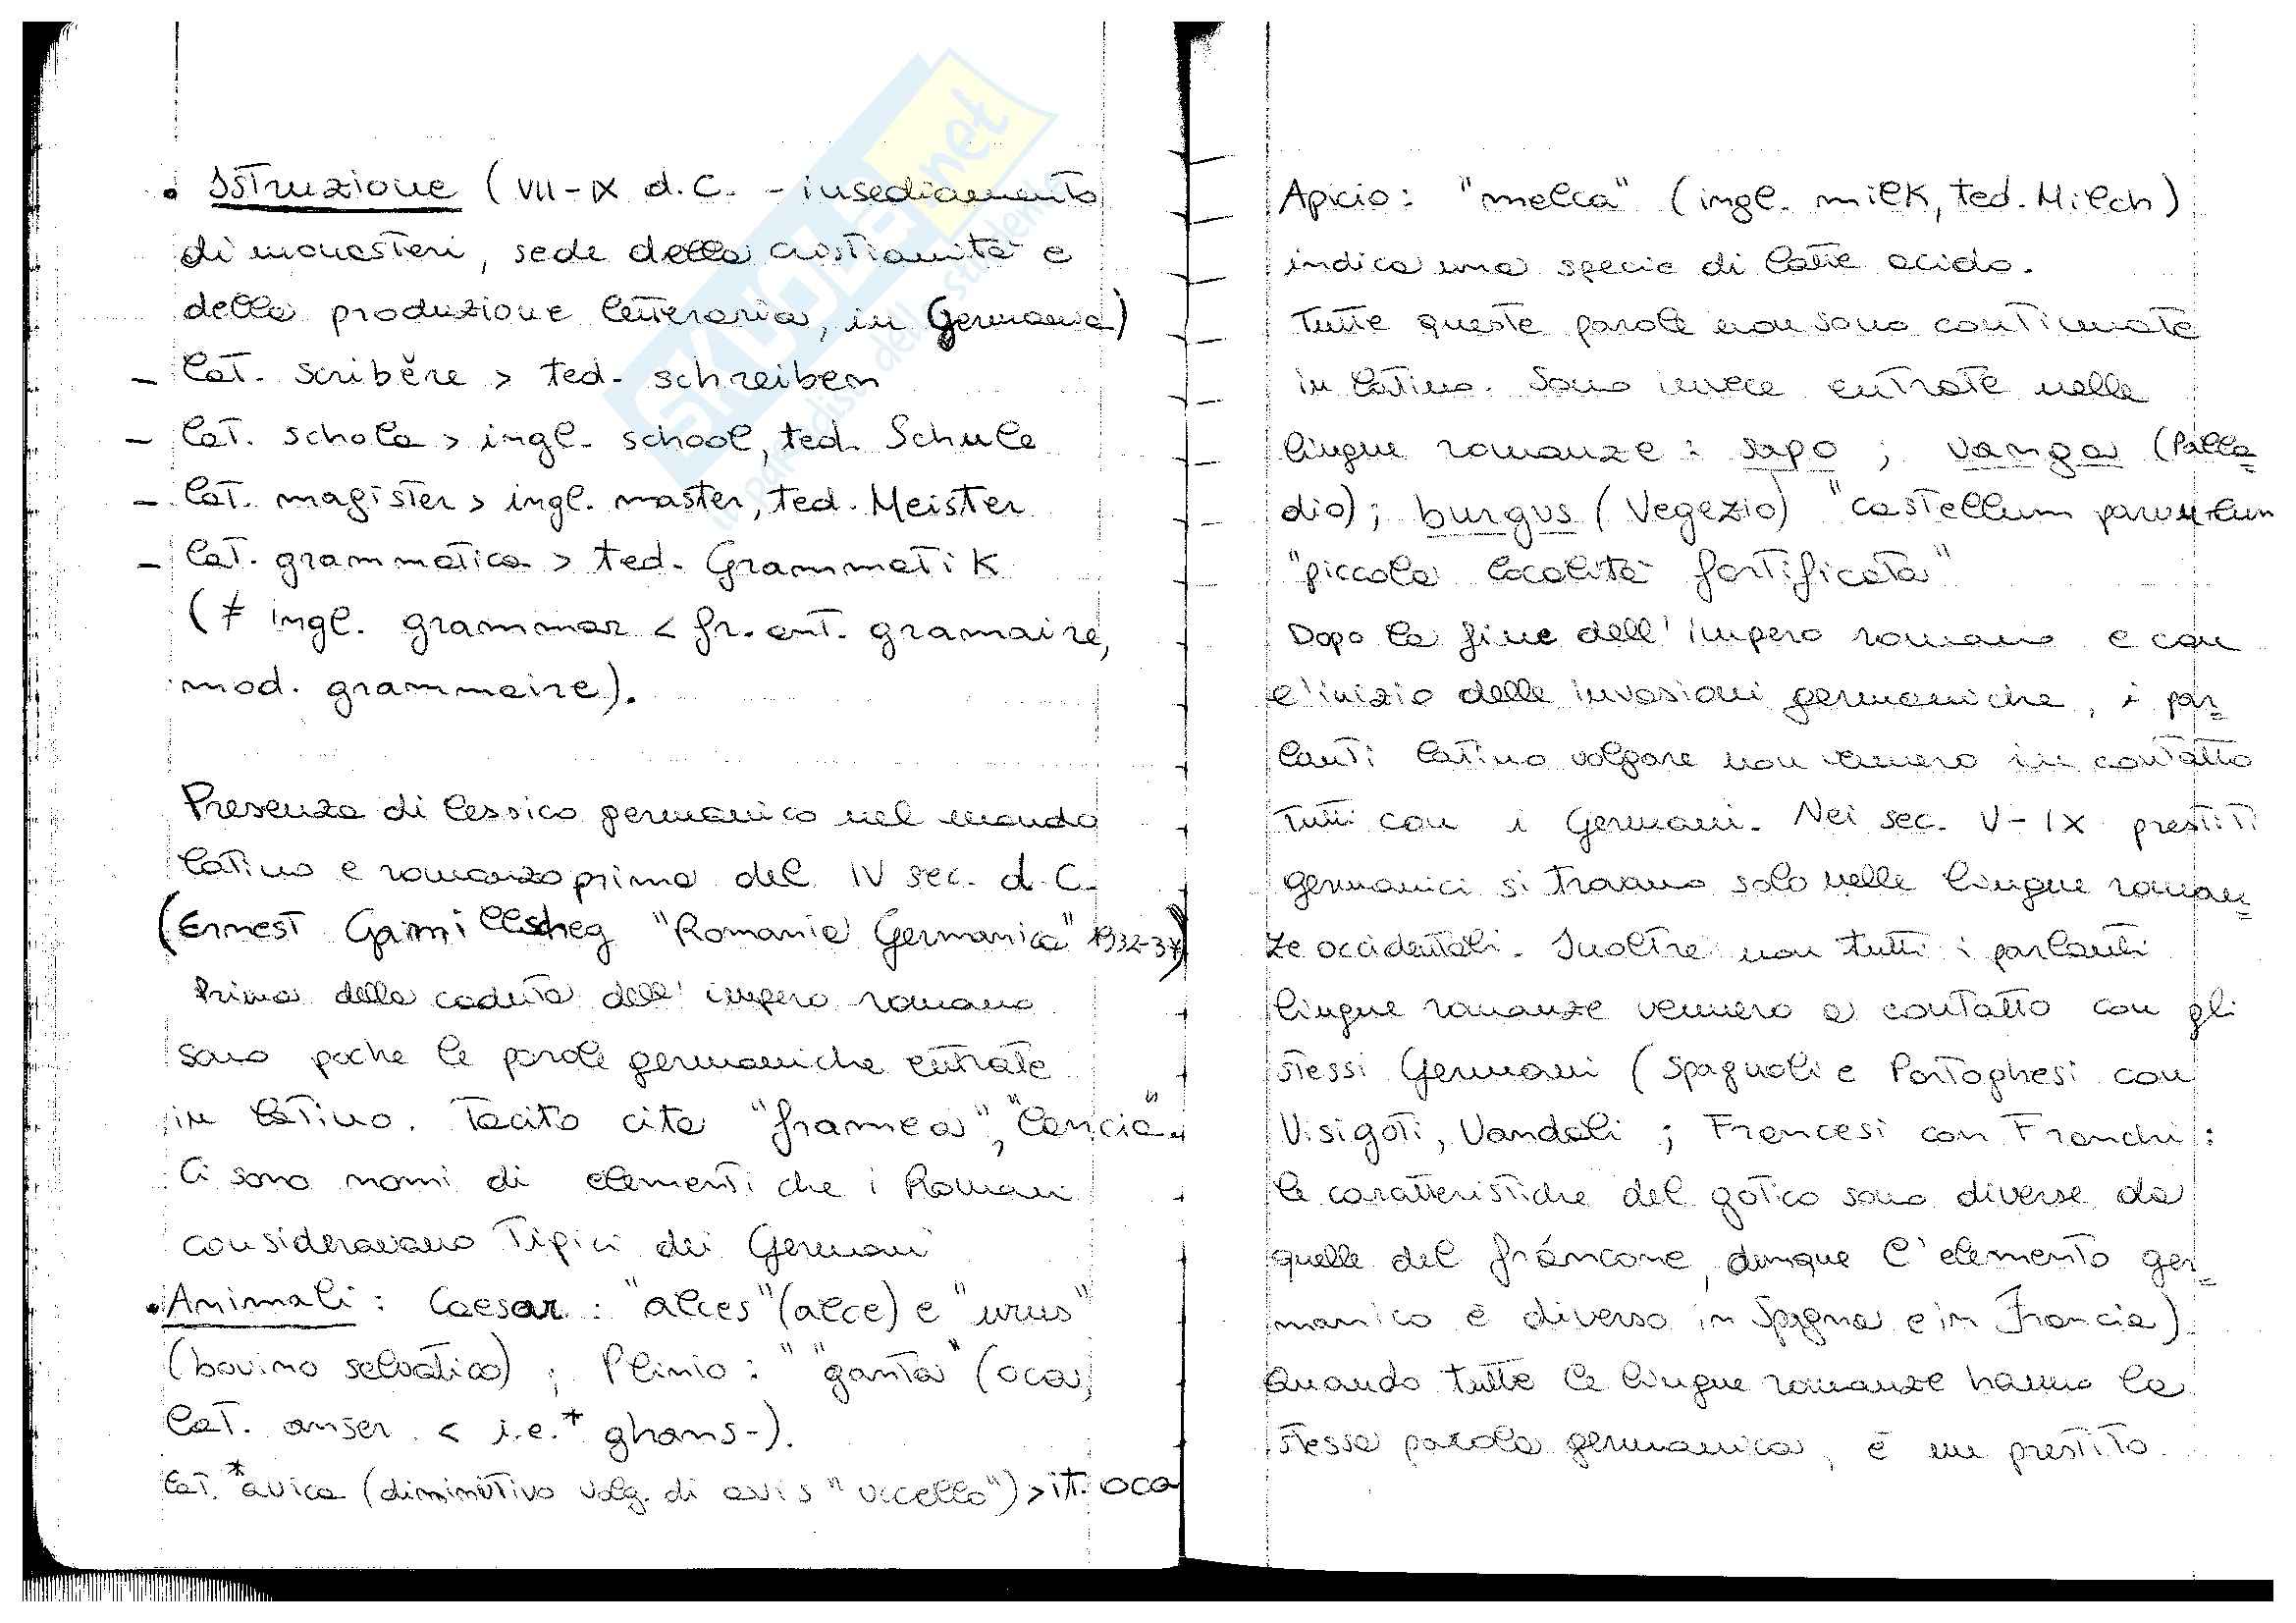 • Istruzione (VII-IX d.C. - insediamento
di monasteri, sede della cristianità e
della produzione letteraria, in Germania)
- lat. scribĕre > ted. schreiben
- lat. schola > ingl. school, ted. Schule
- lat. magister > ingl. master, ted. Meister
- lat. grammatica > ted. Grammatik
(≠ ingl. grammar < fr. ant. gramaire,
mod. grammaire).
Presenza di lessico germanico nel mondo
latino e romanzo prima del IV sec. d.C.
(Ernest Gamillscheg "Romania Germanica" 1932-37)
Prima della caduta dell'impero romano
sono poche le parole germaniche entrate
in latino. Tacito cita "framea", "lancia".
Ci sono nomi di elementi che i Romani
consideravano tipici dei Germani
• Animali: Caesar: "alces" (alce) e "urus"
(bovino selvatico); Plinio: " "ganta" (oca,
lat. anser < i.e.* ghans-).
lat. *avica (diminutivo volg. di avis "uccello") > it. oca
Apicio: "melca" (ingl. milk, ted. Milch)
indica una specie di latte acido.
Tutte queste parole non sono continuate
in latino. Sono invece entrate nelle
lingue romanze: sapo; vanga (Palla=
dio); burgus (Vegezio) "castellum parvulum
"piccola località fortificata"
Dopo la fine dell'impero romano e con
l'inizio delle invasioni germaniche, i par=
lanti latino volgare non vennero in contatto
tutti con i Germani. Nei sec. V-IX prestiti
germanici si trovano solo nelle lingue roman=
ze occidentali. Inoltre non tutti i parlanti
lingue romanze vennero a contatto con gli
stessi Germani (Spagnoli e Portoghesi con
Visigoti, Vandali; Francesi con Franchi:
le caratteristiche del gotico sono diverse da
quelle del fráncone, dunque l'elemento ger=
manico è diverso in Spagna e in Francia).
Quando tutte le lingue romanze hanno la
stessa parola germanica, è un prestito
SKUOLA.net